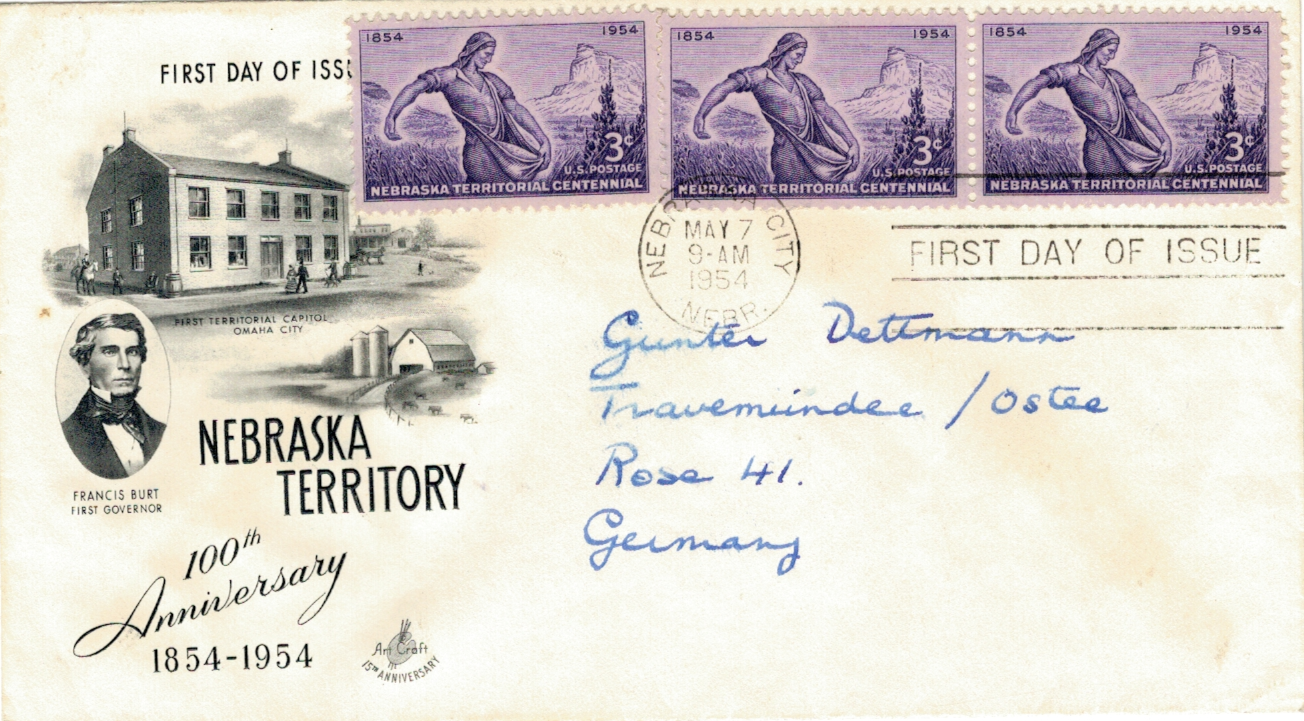 FIRST DAY OF ISSU
1854 1954
3¢
U.S. POSTAGE
NEBRASKA TERRITORIAL CENTENNIAL
1854 1954
3¢
U.S. POSTAGE
NEBRASKA TERRITORIAL CENTENNIAL
1854 1954
3¢
U.S. POSTAGE
NEBRASKA TERRITORIAL CENTENNIAL
NEBRASKA CITY
MAY 7
9-AM
1954
NEBR.
FIRST DAY OF ISSUE
FIRST TERRITORIAL CAPITOL
OMAHA CITY
FRANCIS BURT
FIRST GOVERNOR
NEBRASKA
TERRITORY
100th
Anniversary
1854-1954
Art Craft
15TH ANNIVERSARY
Gunter Dettmann
Travemündee / Ostee
Rose 41.
Germany